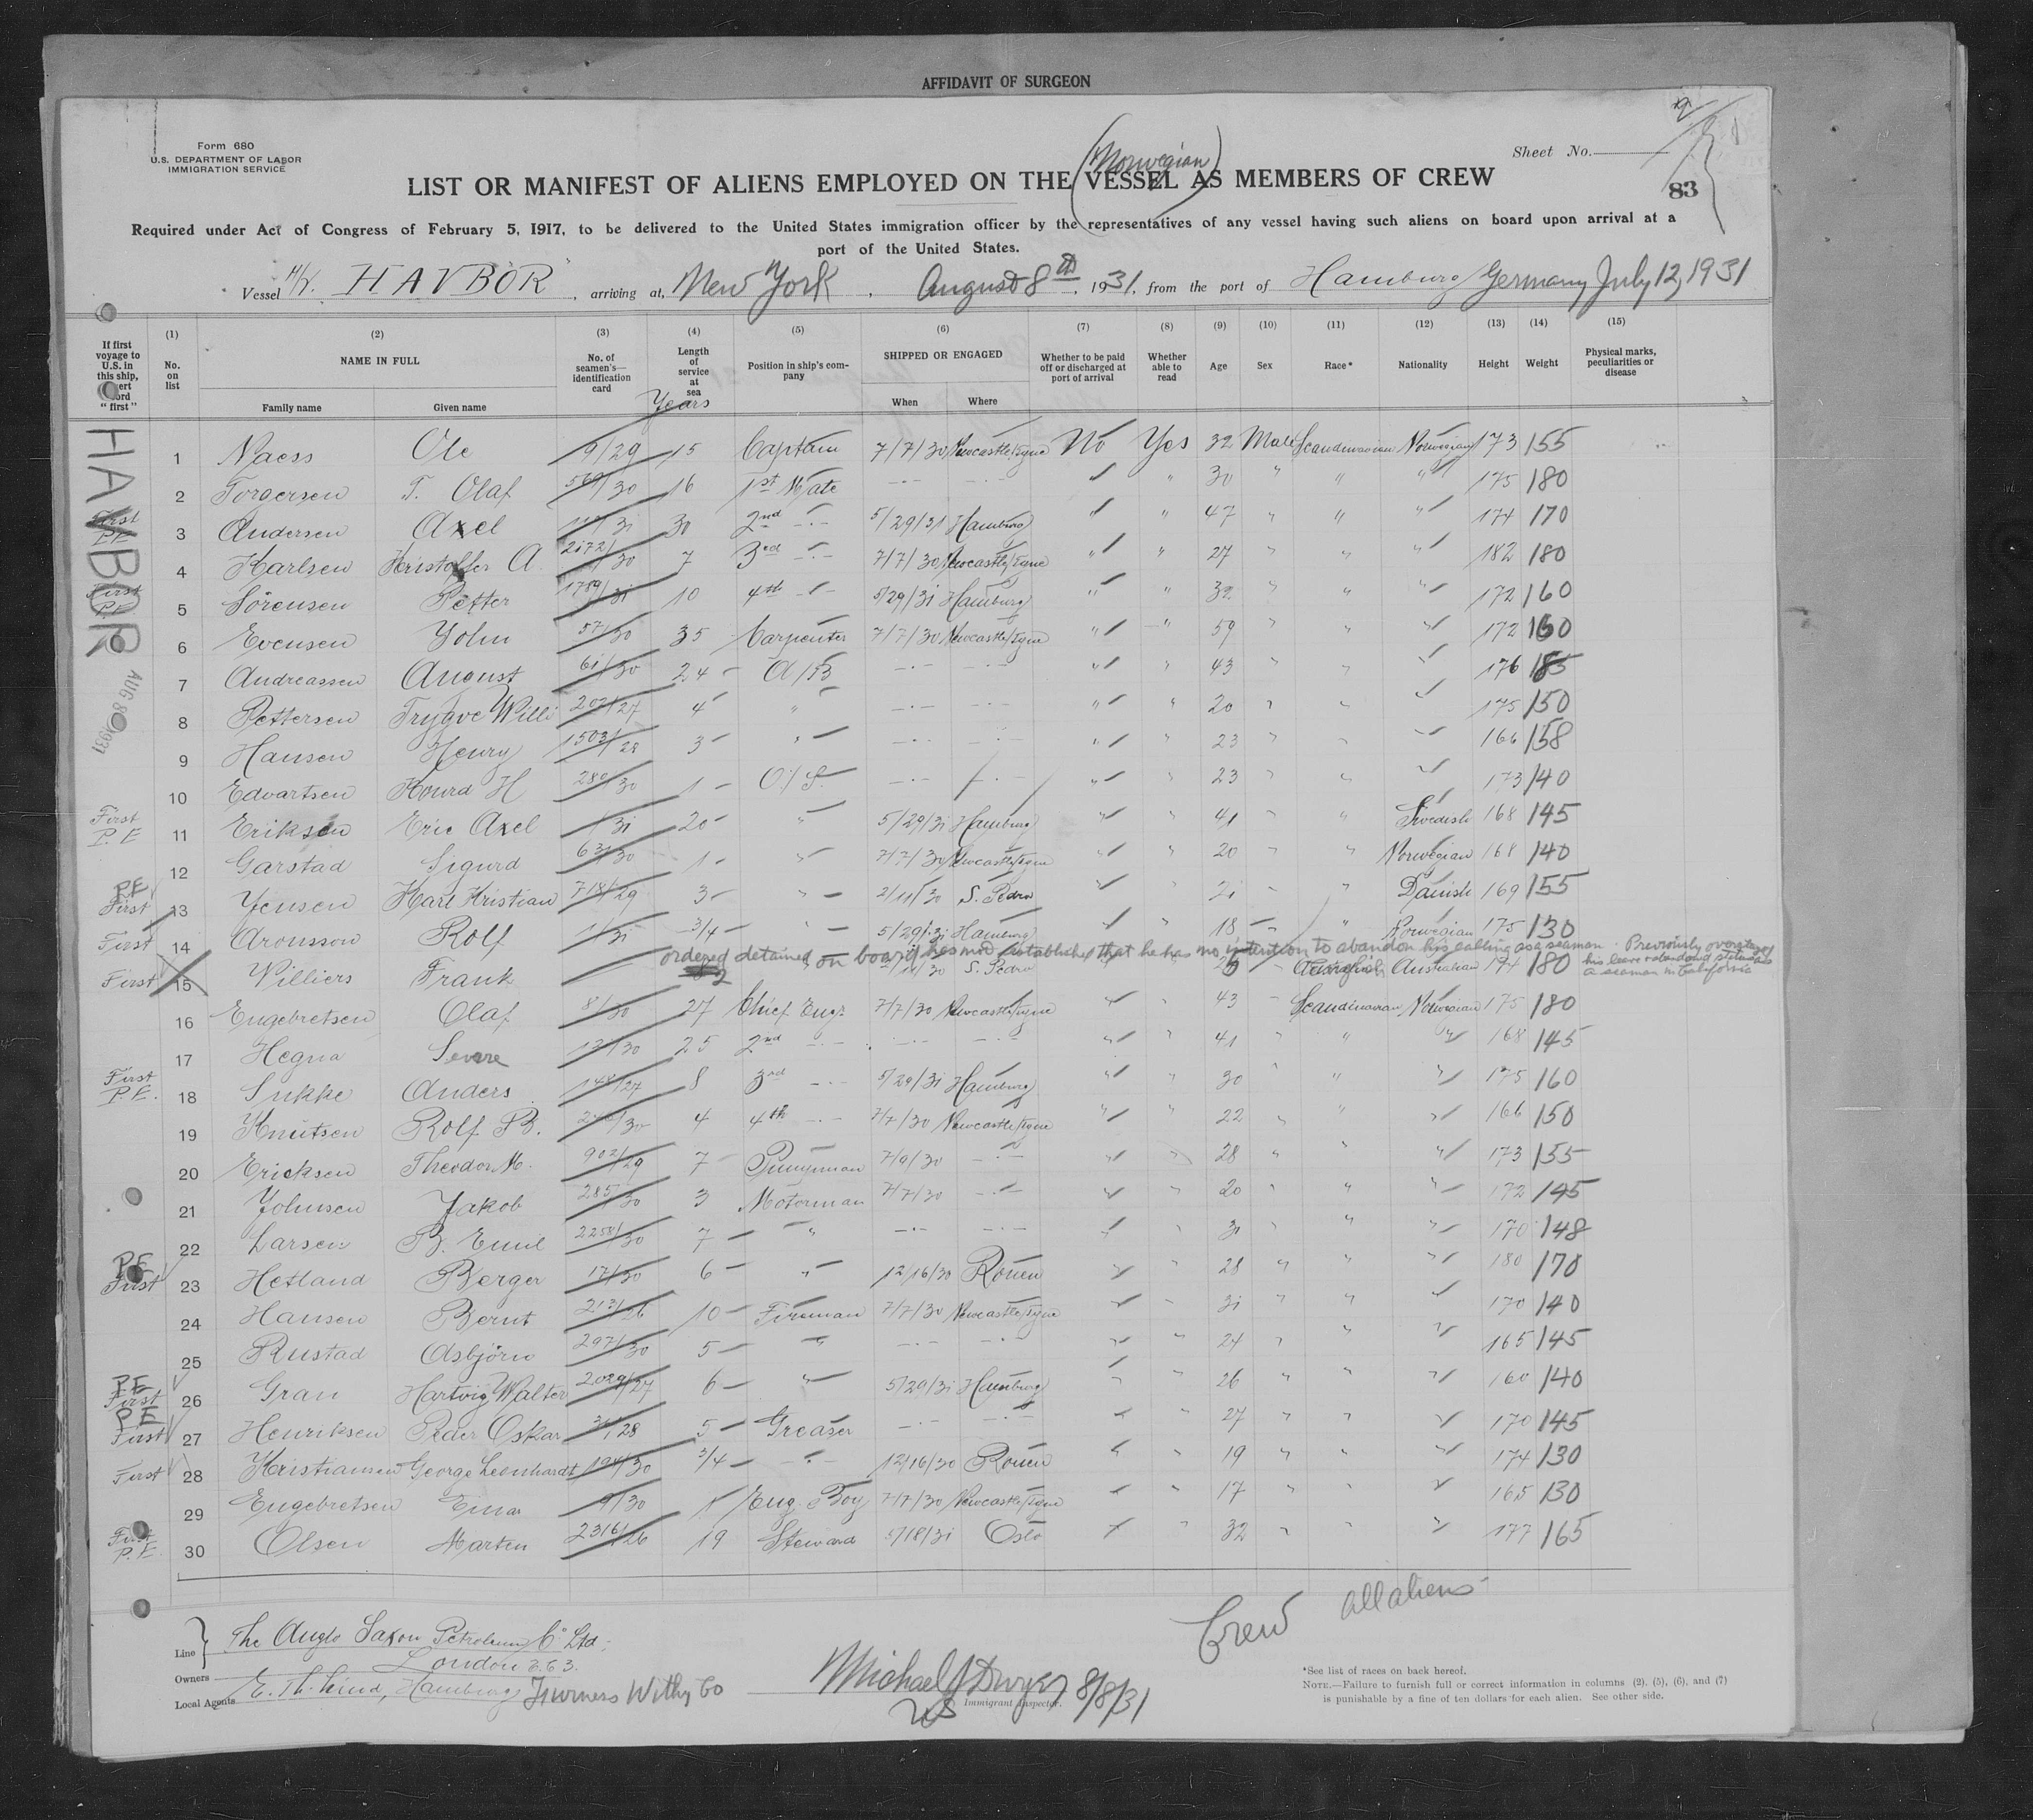 AFFIDAVIT OF SURGEON
Form 680
U.S. DEPARTMENT OF LABOR
IMMIGRATION SERVICE
Sheet No.
83
(Norwegian)
LIST OR MANIFEST OF ALIENS EMPLOYED ON THE VESSEL AS MEMBERS OF CREW
Required under Act of Congress of February 5, 1917, to be delivered to the United States immigration officer by the representatives of any vessel having such aliens on board upon arrival at a
port of the United States.
Vessel "HAVBÖR", arriving at, New York, August 8th, 1931, from the port of Hamburg Germany July 12, 1931
If first voyage to U.S. in this ship, word "first"
(1) No. on list
(2) NAME IN FULL Family name Given name
(3) No. of seamen's identification card
(4) Length of service at sea Years
(5) Position in ship's company
(6) SHIPPED OR ENGAGED When Where
(7) Whether to be paid off or discharged at port of arrival
(8) Whether able to read
(9) Age
(10) Sex
(11) Race*
(12) Nationality
(13) Height
(14) Weight
(15) Physical marks, peculiarities or disease
HAVBOR AUG 8 1931
1 Naess Ole 9/29 15 Captain 7/7/30 Newcastle/Tyne No Yes 32 Male Scandinavian Norwegian 173 155
2 Torgersen T. Olaf 30 16 1st Mate -·- -·- " " 30 " " " 175 180
First P.E. 3 Andersen Axel 31 30 2nd -·- 5/29/31 Hamburg " " 47 " " " 174 170
4 Karlsen Kristoffer A. 2172/30 7 3rd -·- 7/7/30 Newcastle/Tyne " " 27 " " " 182 180
First P.E. 5 Sörensen Petter 1789/31 10 4th -·- 5/29/31 Hamburg " " 32 " " " 172 160
6 Evensen John 57/30 35 Carpenter 7/7/30 Newcastle/Tyne " " 59 " " " 172 160
7 Andreassen August 61/30 24 A/B -·- -·- " " 43 " " " 176 185
8 Pettersen Trygve Willi 202/27 4 " -·- -·- " " 20 " " " 175 150
9 Hansen Henry 1503/28 3 " -·- -·- " " 23 " " " 166 158
10 Edvartsen H 280/30 1 O/S -·- -·- " " 23 " " " 173 140
First P.E 11 Eriksen Eric Axel 1/31 20 " 5/29/31 Hamburg " " 41 " " Swedish 168 145
12 Garstad Sigurd 63/30 1 " 7/7/30 Newcastle/Tyne " " 20 " " Norwegian 168 140
P.E First 13 Jensen Karl Kristian 718/29 3 " 2/11/30 S. Pedro " " 21 " " Danish 169 155
First 14 Aronsson Rolf 1/31 3/4 " 5/29/31 Hamburg " " 18 " " Norwegian 175 130
ordered detained on board has not established that he has no intention to abandon his calling as a seaman. Previously overstayed
his leave + abandoned status as
a seaman in California
First 15 Williers Frank S. Pedro Australian 174 180
16 Engebretsen Olaf 8/30 27 Chief Engr. 7/7/30 Newcastle/Tyne " " 43 " Scandinavian Norwegian 175 180
17 Hegna 12/30 25 2nd -·- -·- -·- " " 41 " " " 168 145
First P.E. 18 Sukke Anders 144/27 8 3rd -·- 5/29/31 Hamburg " " 30 " " " 175 160
19 Knutsen Rolf B. 30 4 4th -·- 7/7/30 Newcastle/Tyne " " 22 " " " 166 150
20 Ericksen Theodor M. 902/29 7 Pumpman 7/9/30 -·- " " 28 " " " 173 155
21 Johnsen Jakob 285/30 3 Motorman 7/7/30 -·- " " 20 " " " 172 145
22 Larsen B. Emil 2258/30 7 " -·- -·- " " 31 " " " 170 148
P.E First 23 Hetland Berger 17/30 6 " 12/16/30 Rouen " " 28 " " " 180 170
24 Hansen Bernt 213/26 10 Fireman 7/7/30 Newcastle/Tyne " " 31 " " " 170 140
25 Rustad Asbjörn 297/30 5 " -·- -·- " " 24 " " " 165 145
P.E First 26 Gran Hartvig Walter 2029/27 6 " 5/29/31 Hamburg " " 26 " " " 160 140
P.E First 27 Henriksen Peder Oskar 28 5 Greaser -·- -·- " " 27 " " " 170 145
First 28 Kristiansen George Leonhardt 194/30 3/4 -·- 12/16/30 Rouen " " 19 " " " 174 130
29 Engebretsen Einar 9/30 1 Eng. Boy 7/7/30 Newcastle/Tyne " " 17 " " " 165 130
First P.E. 30 Olsen Marten 2316/26 19 Steward 5/18/31 Oslo " " 32 " " " 177 165
Crew all aliens
Line The Anglo Saxon Petroleum Co Ltd.
Owners London E.C.3.
Local Agents E. Th. Lind, Hamburg Furness Withy Co
Michael J Dwyer 8/8/31
Immigrant Inspector.
*See list of races on back hereof.
NOTE.—Failure to furnish full or correct information in columns (2), (5), (6), and (7)
is punishable by a fine of ten dollars for each alien. See other side.